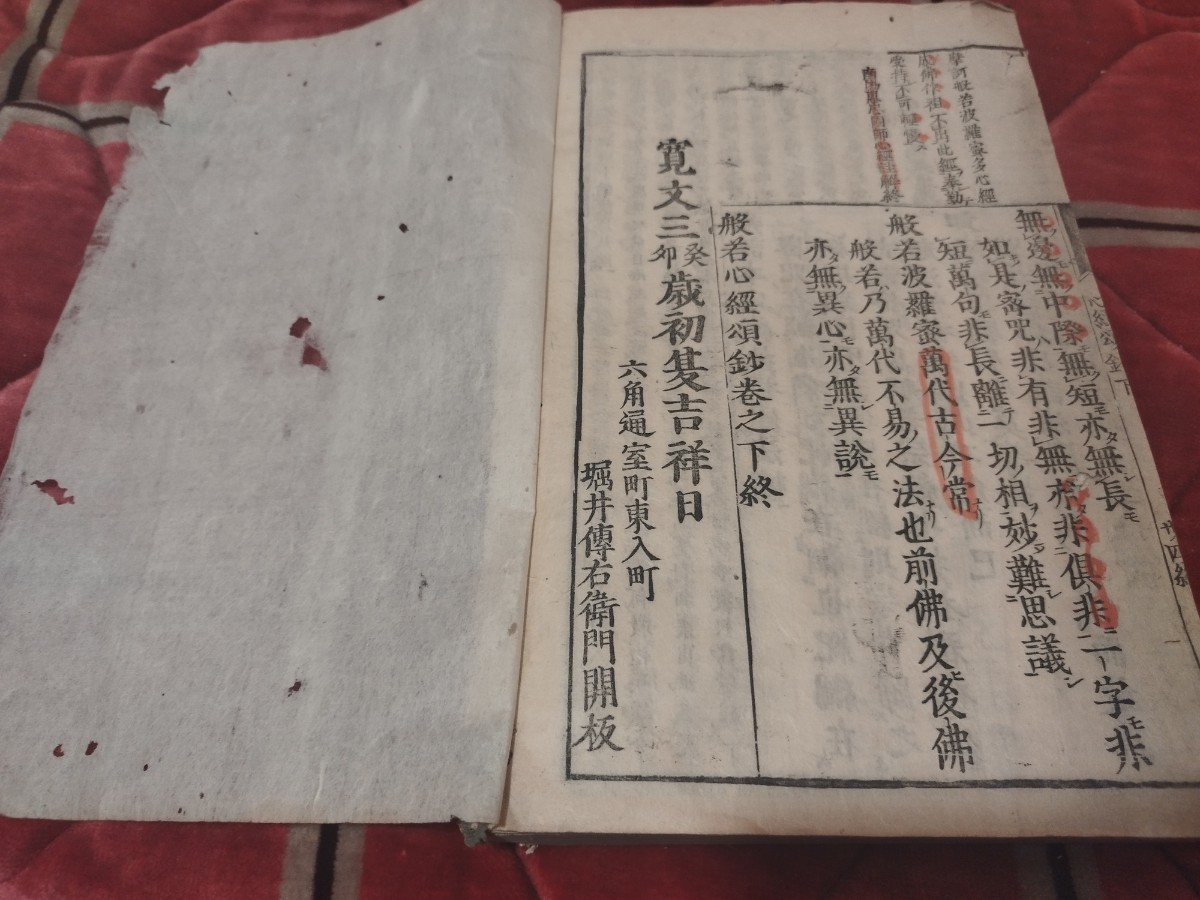 無邊無中際無短亦無長
如是密咒非有非無亦非俱非一字非
短萬句非長離一切相妙難思議
般若波羅密萬代古今常
般若乃萬代不易之法也前佛及後佛
亦無異心亦無異說
般若心經頌鈔卷之下終
寛文三癸卯歳初夏吉祥日
六角通室町東入町
堀井傳右衛門開板
摩訶般若波羅密多心經
不出此經奉勸
受持